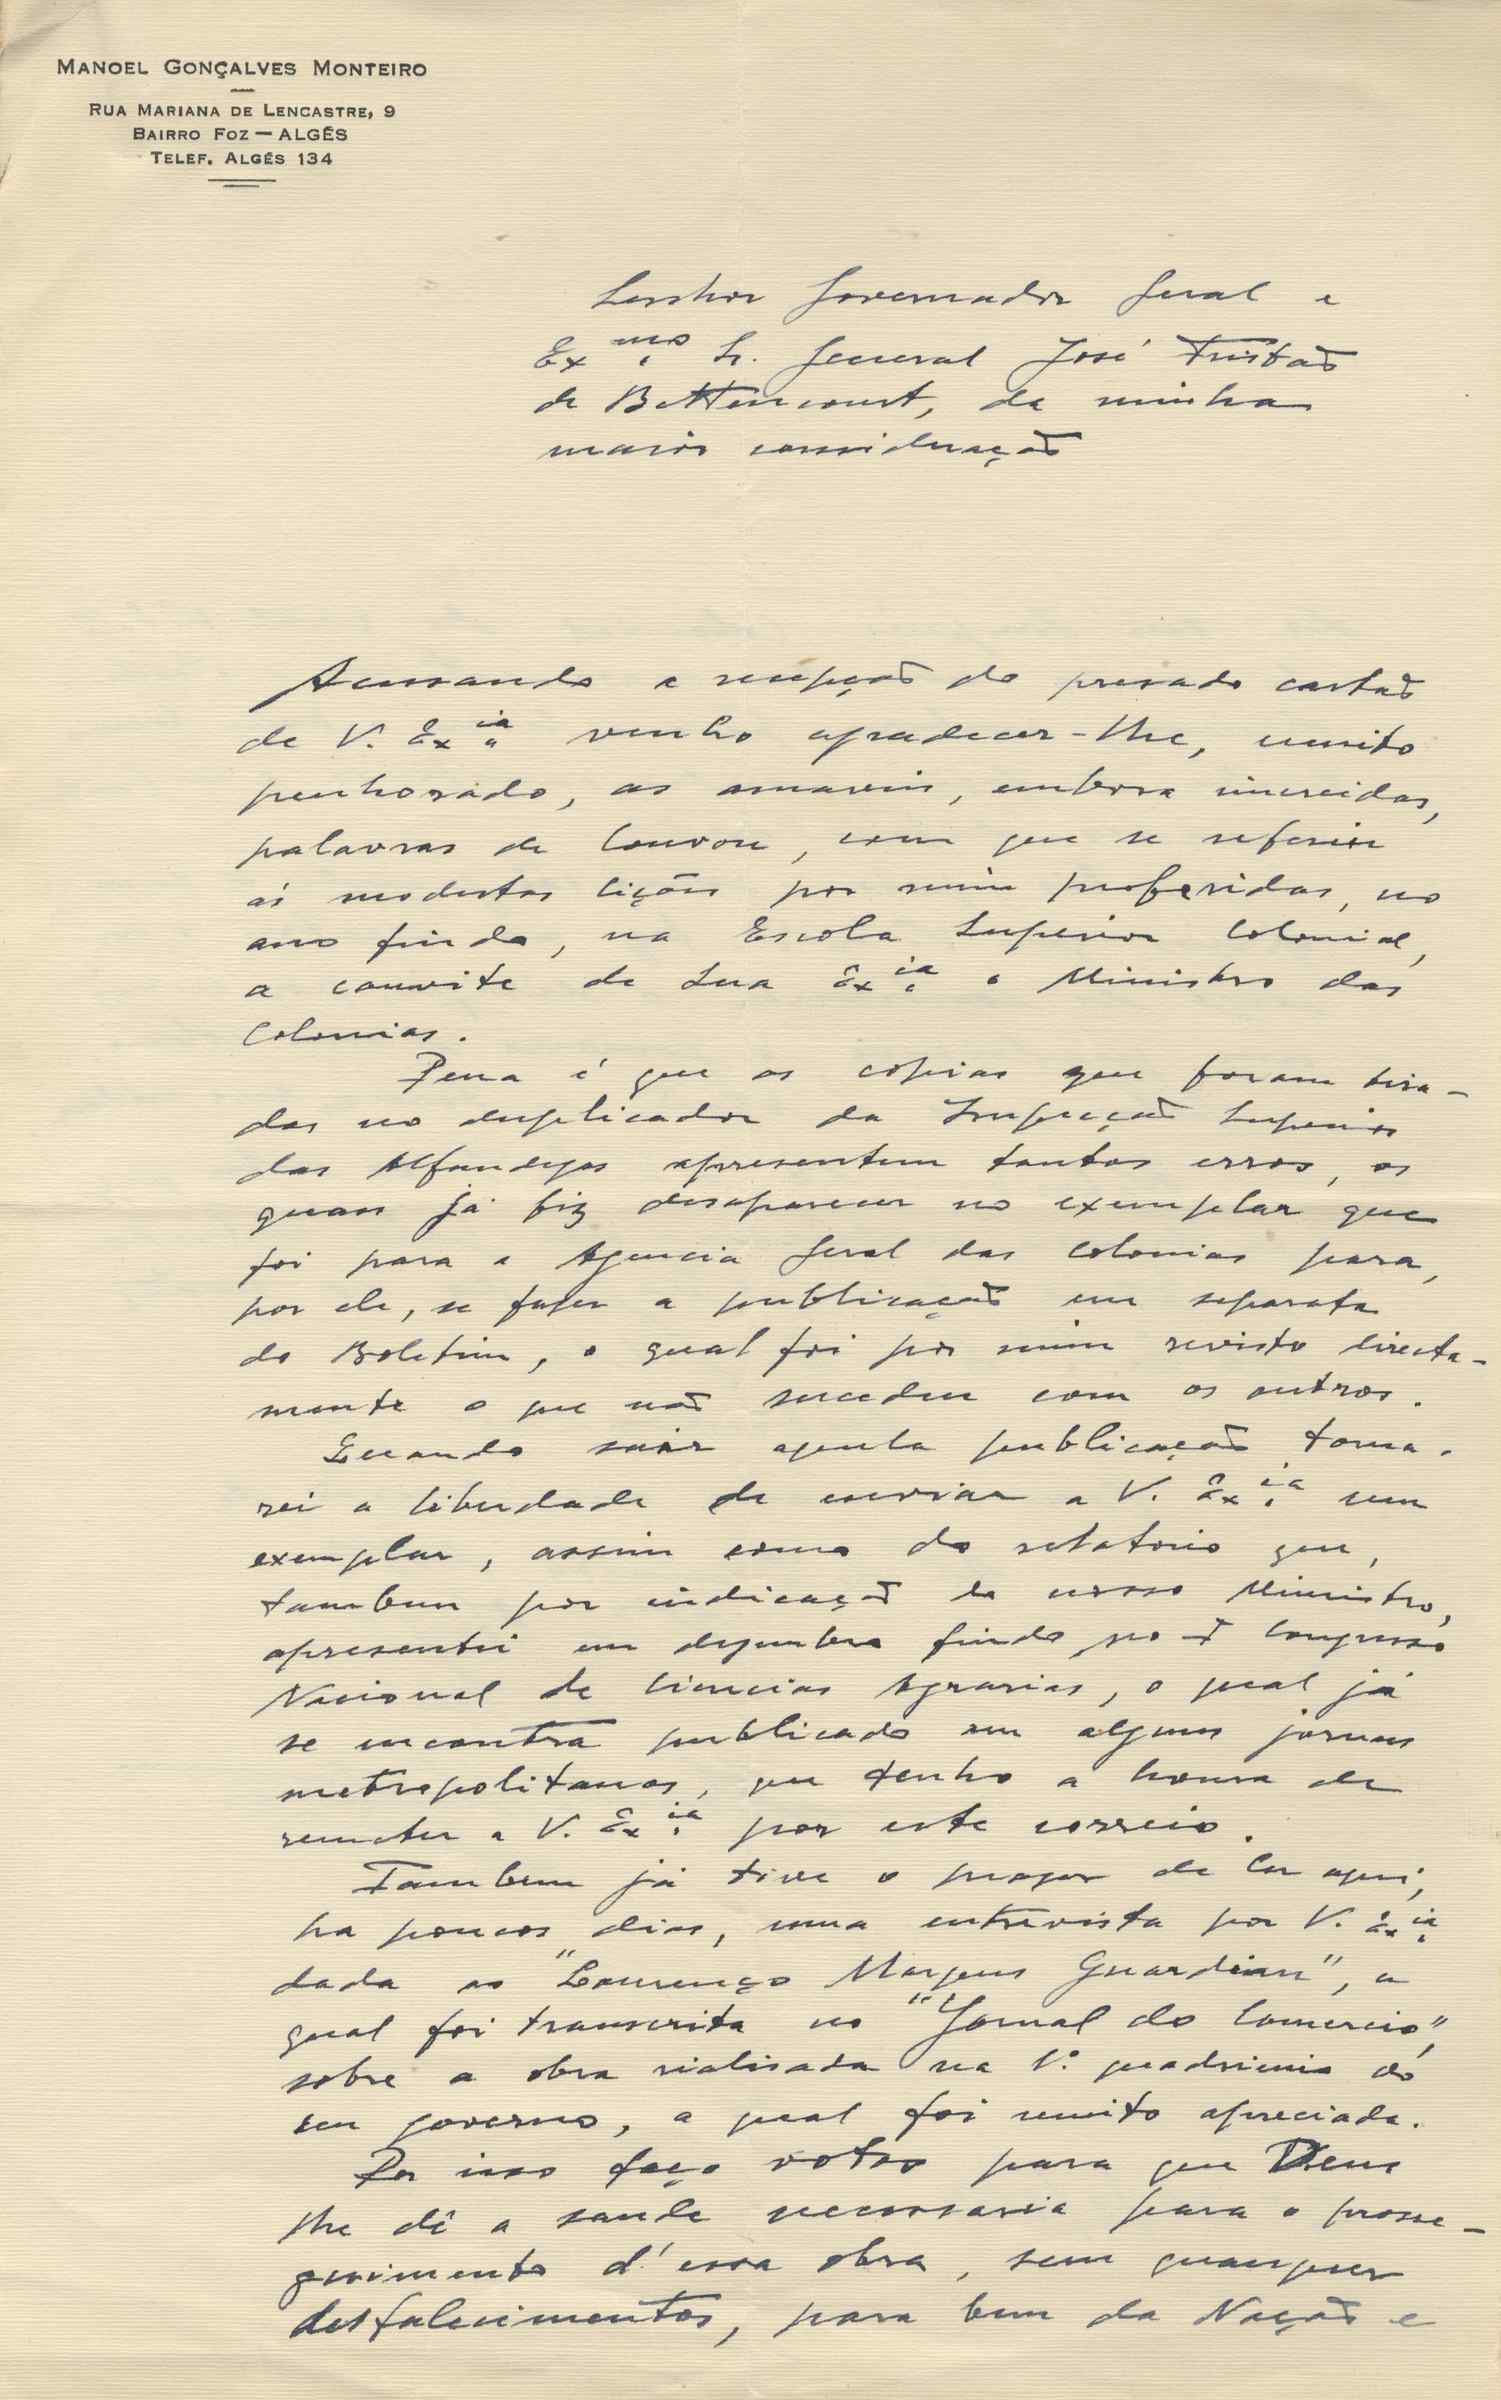 MANOEL GONÇALVES MONTEIRO
RUA MARIANA DE LENCASTRE, 9
BAIRRO FOZ — ALGÉS
TELEF. ALGÉS 134
Senhor Governador Geral e
Exmo. Sr. General José Tristão
de Bettencourt, da minha
maior consideração
Acusando a recepção do presado cartão
de V. Exia. venho agradecer-lhe, muito
penhorado, as amaveis, embora imerecidas,
palavras de louvor, com que se referiu
ás modestas lições por mim proferidas, no
ano findo, na Escola Superior Colonial,
a convite de Sua Exia. o Ministro das
Colonias.
Pena é que as copias que foram tira-
das no duplicador da Inspeção Superior
das Alfandegas apresentem tantos erros, os
quaes já fiz desaparecer no exemplar que
foi para a Agencia Geral das Colonias para,
por ele, se fazer a publicação em separata
do Boletim, o qual foi por mim revisto directa-
mente o que não sucedeu com os outros.
Quando sair aquela publicação toma-
rei a liberdade de enviar a V. Exia. um
exemplar, assim como do relatorio que,
tambem por indicação do nosso Ministro,
apresentei em dezembro findo no I Congresso
Nacional de Ciencias Agrarias, o qual já
se encontra publicado em alguns jornaes
metropolitanos, que tenho a honra de
remeter a V. Exia. por este correio.
Tambem já tive o prazer de ler aqui,
ha poucos dias, uma entrevista por V. Exia.
dada ao "Lourenço Marques Guardian", a
qual foi transcrita no "Jornal do Comercio",
sobre a obra rialisada no 1.º quadrienio do
seu governo, a qual foi muito apreciada.
Por isso faço votos para que Deus
lhe dê a saude necessaria para o prosse-
guimento d'essa obra, sem quaesquer
desfalecimentos, para bem da Nação e